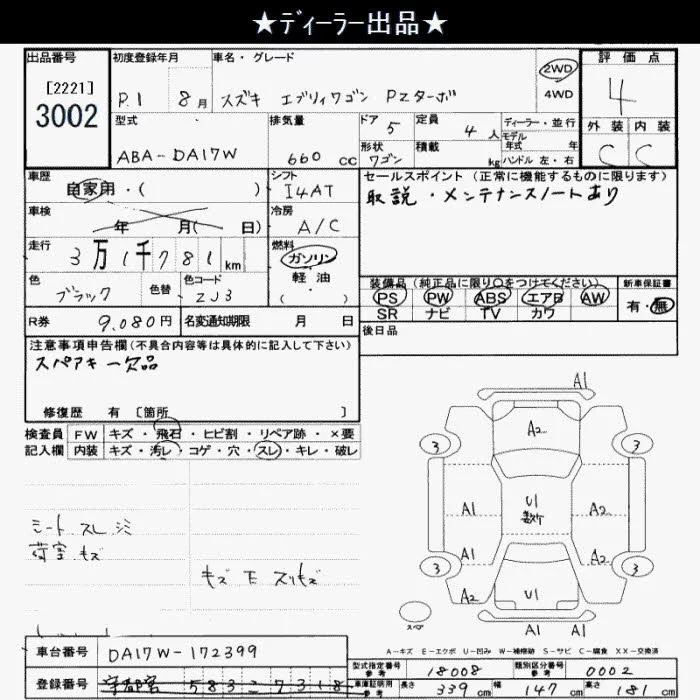 ★ディーラー出品★
出品番号 初度登録年月 車名・グレード 2WD 評価点
[2221] R.1 8月 スズキ エブリィワゴン PZターボ 4WD 4
3002 型式 排気量 ドア 5 定員 4人 ディーラー・並行 外装 内装
モデル年式 年
ABA-DA17W 660cc 形状 ワゴン 積載 kg ハンドル 左・右 C C
車歴 自家用・( ) シフト I4AT セールスポイント (正常に機能するものに限ります)
取説・メンテナンスノートあり
車検 年 月( 日) 冷房 A/C
走行 3万1千781km 燃料 ガソリン
軽・油
( )
色 ブラック 色替 色コード ZJ3
装備品 (純正品に限り○をつけてください) 新車保証書
PS PW ABS エアB AW 有・無
SR ナビ TV カワ
R券 9,080円 名変通知期限 月 日 後日品
注意事項申告欄(不具合内容等は具体的に記入して下さい)
スペアキー欠品
修復歴 有 [箇所 ]
検査員 FW キズ・飛石・ヒビ割・リペア跡・×要
記入欄 内装 キズ・汚レ・コゲ・穴・スレ・キレ・破レ
シート スレ シミ
荷室 キズ
キズ E スリキズ
A1
A2
3 3
A1 U1 A2
数ケ
A1 A2
3 3
A2 U1
A1 A1
スペア
A-キズ E-エクボ U-凹み W-補修跡 S-サビ C-腐食 XX-交換済
車台番号 DA17W-172399 型式指定番号 参考 18008 類別区分番号 参考 0002
登録番号 宇都宮 583 車庫証明用 参考 長さ 339cm 幅 147cm 高さ 181cm